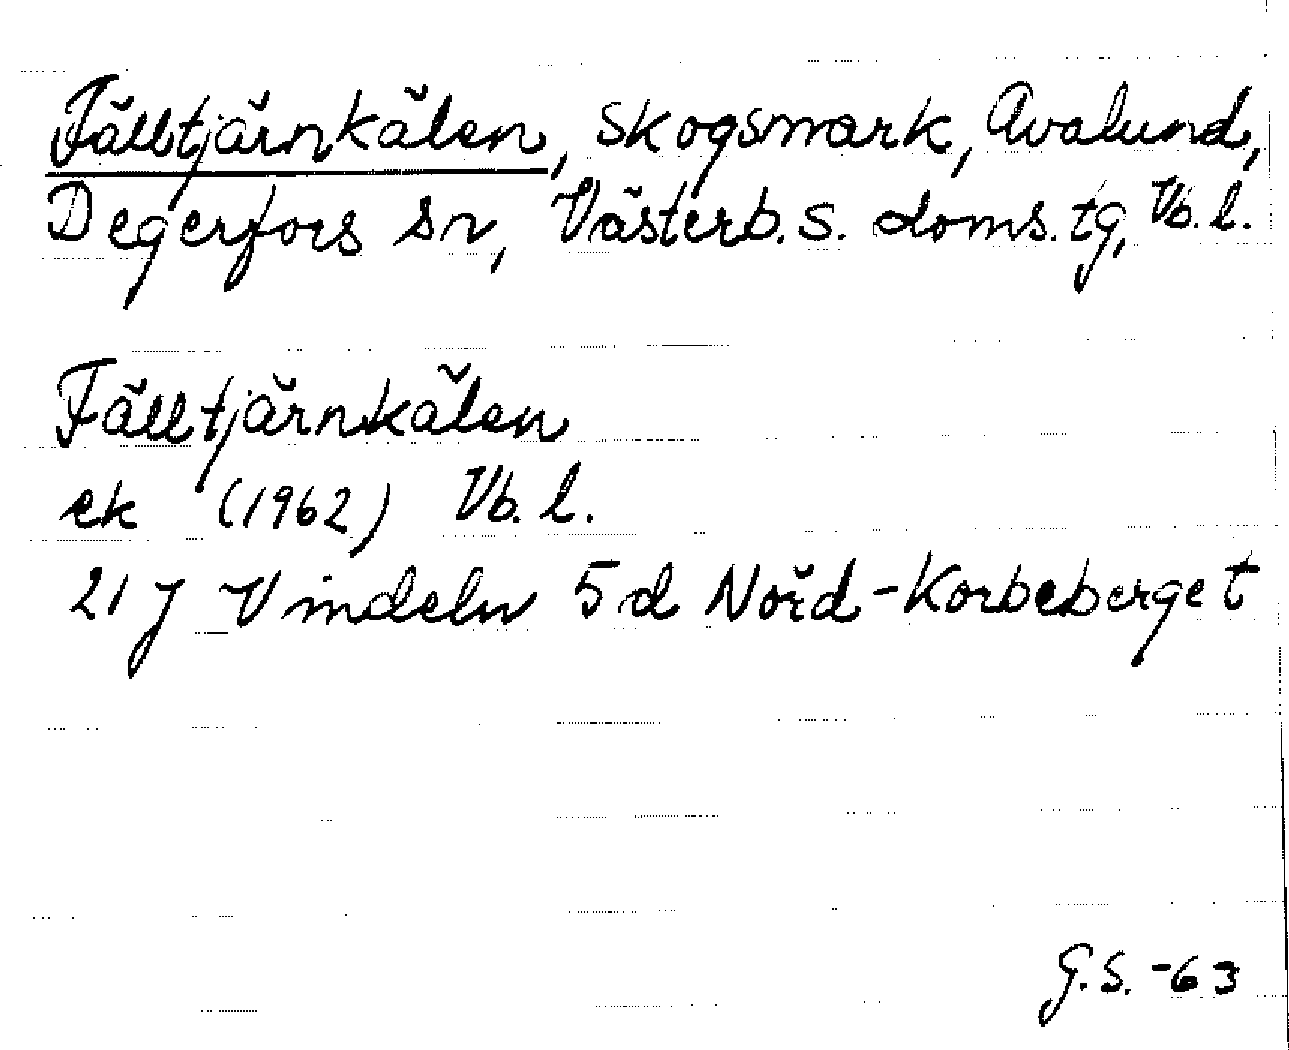 Fälltjärnkålen, skogsmark, Avalund,
Degerfors sn, Västerb. s. doms. tg, Vb. l.
Fälltjärnkålen
ek (1962) Vb. l.
21 J Vindeln 5 d Nord-Korbeberget
G.S. -63